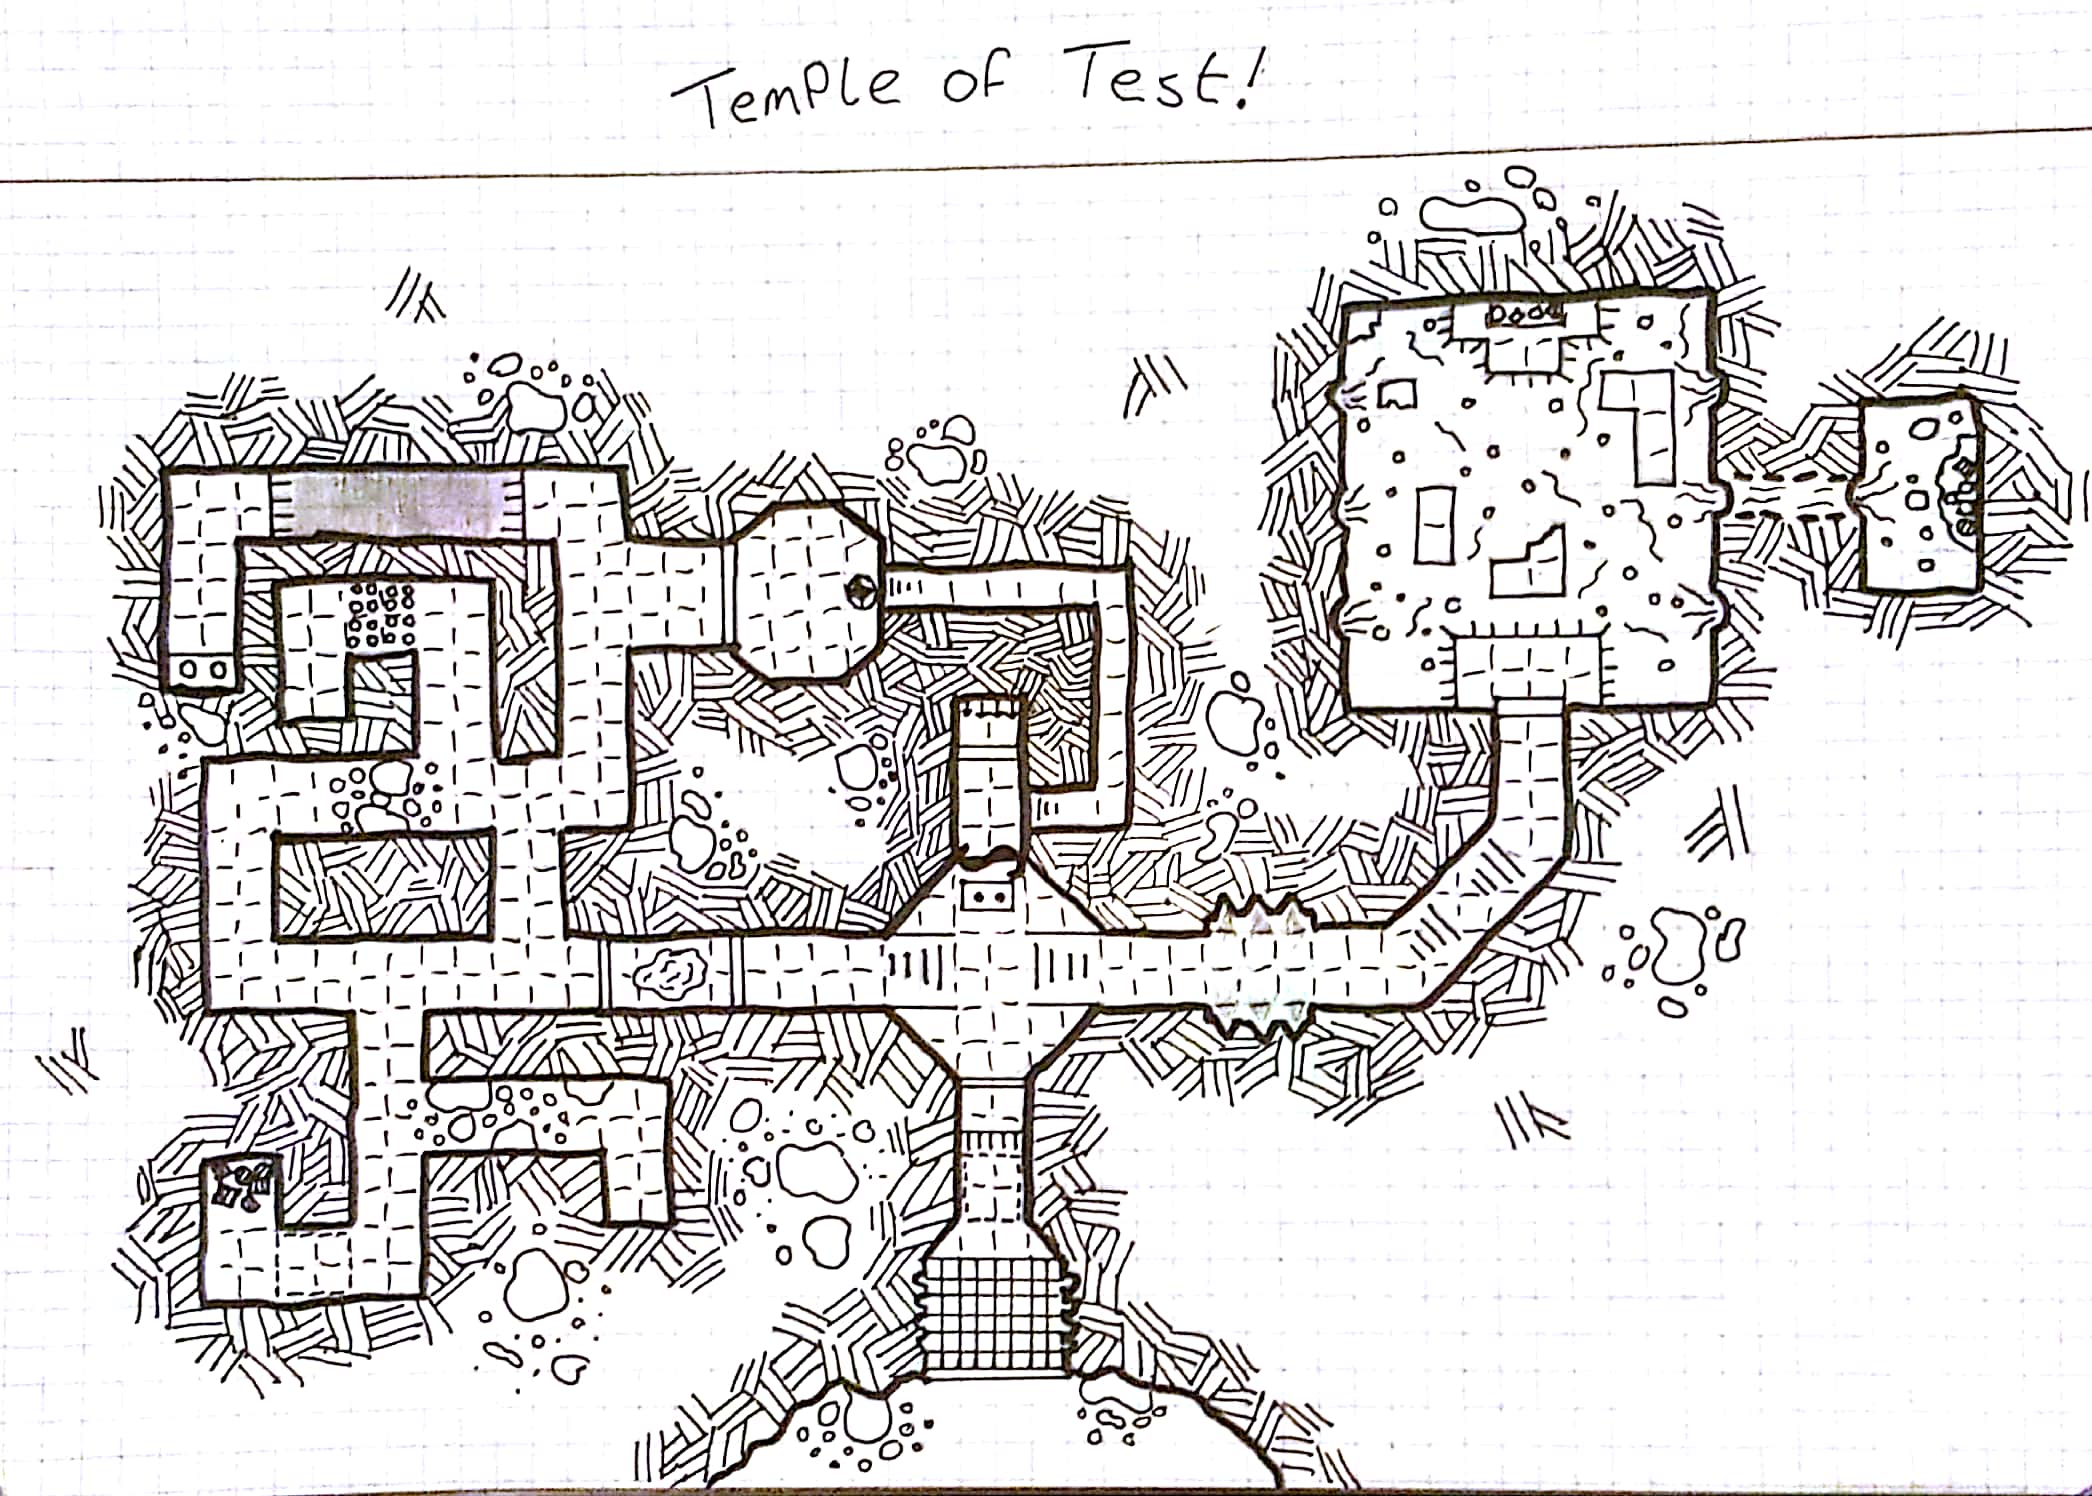 Temple of Test!